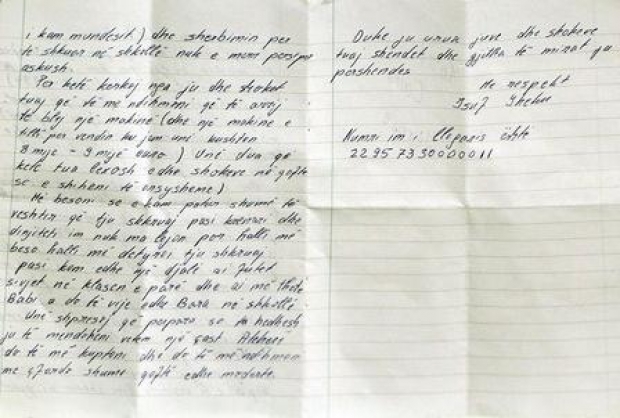 i kam mundesit.) dhe sherbimin per
të shkuar në shkollë nuk e mora persipër
askush.
Per ketë kerkoj nga ju dhe shokët
tuaj që të me ndihmoni që të arrij
të blej një makinë (dhe një makine e
tillë per vendin ku jam unë kushton
8 mije - 9 mijë euro) Unë dua që
ketë tua lexosh edhe shokeve në qoftë
se e shihni të arsyshme)
Më besoni se e kam patur shumë të
veshtir që tju shkruaj pasi krenari dhe
dinjiteti im nuk ma lejon por halli më
beso halli më detyroi tju shkruaj.
pasi kam edhe një djalë ai futet
sivjet në klasen e parë dhe ai më thotë
Babi a do të vije edhe Bora në shkollë.
Unë shpresoj që perpara se ta hedhesh
ju të mendoheni vetem një çast. Atëherë
do të më kuptoni dhe do të më ndihmon
me çfarde shume qoftë edhe modeste.
Duke ju uruar juve dhe shokeve
tuaj shendet dhe gjitha të mirat ju
pershendes
Me respekt
Isuf
Numri im i llogaris është
22957330000011